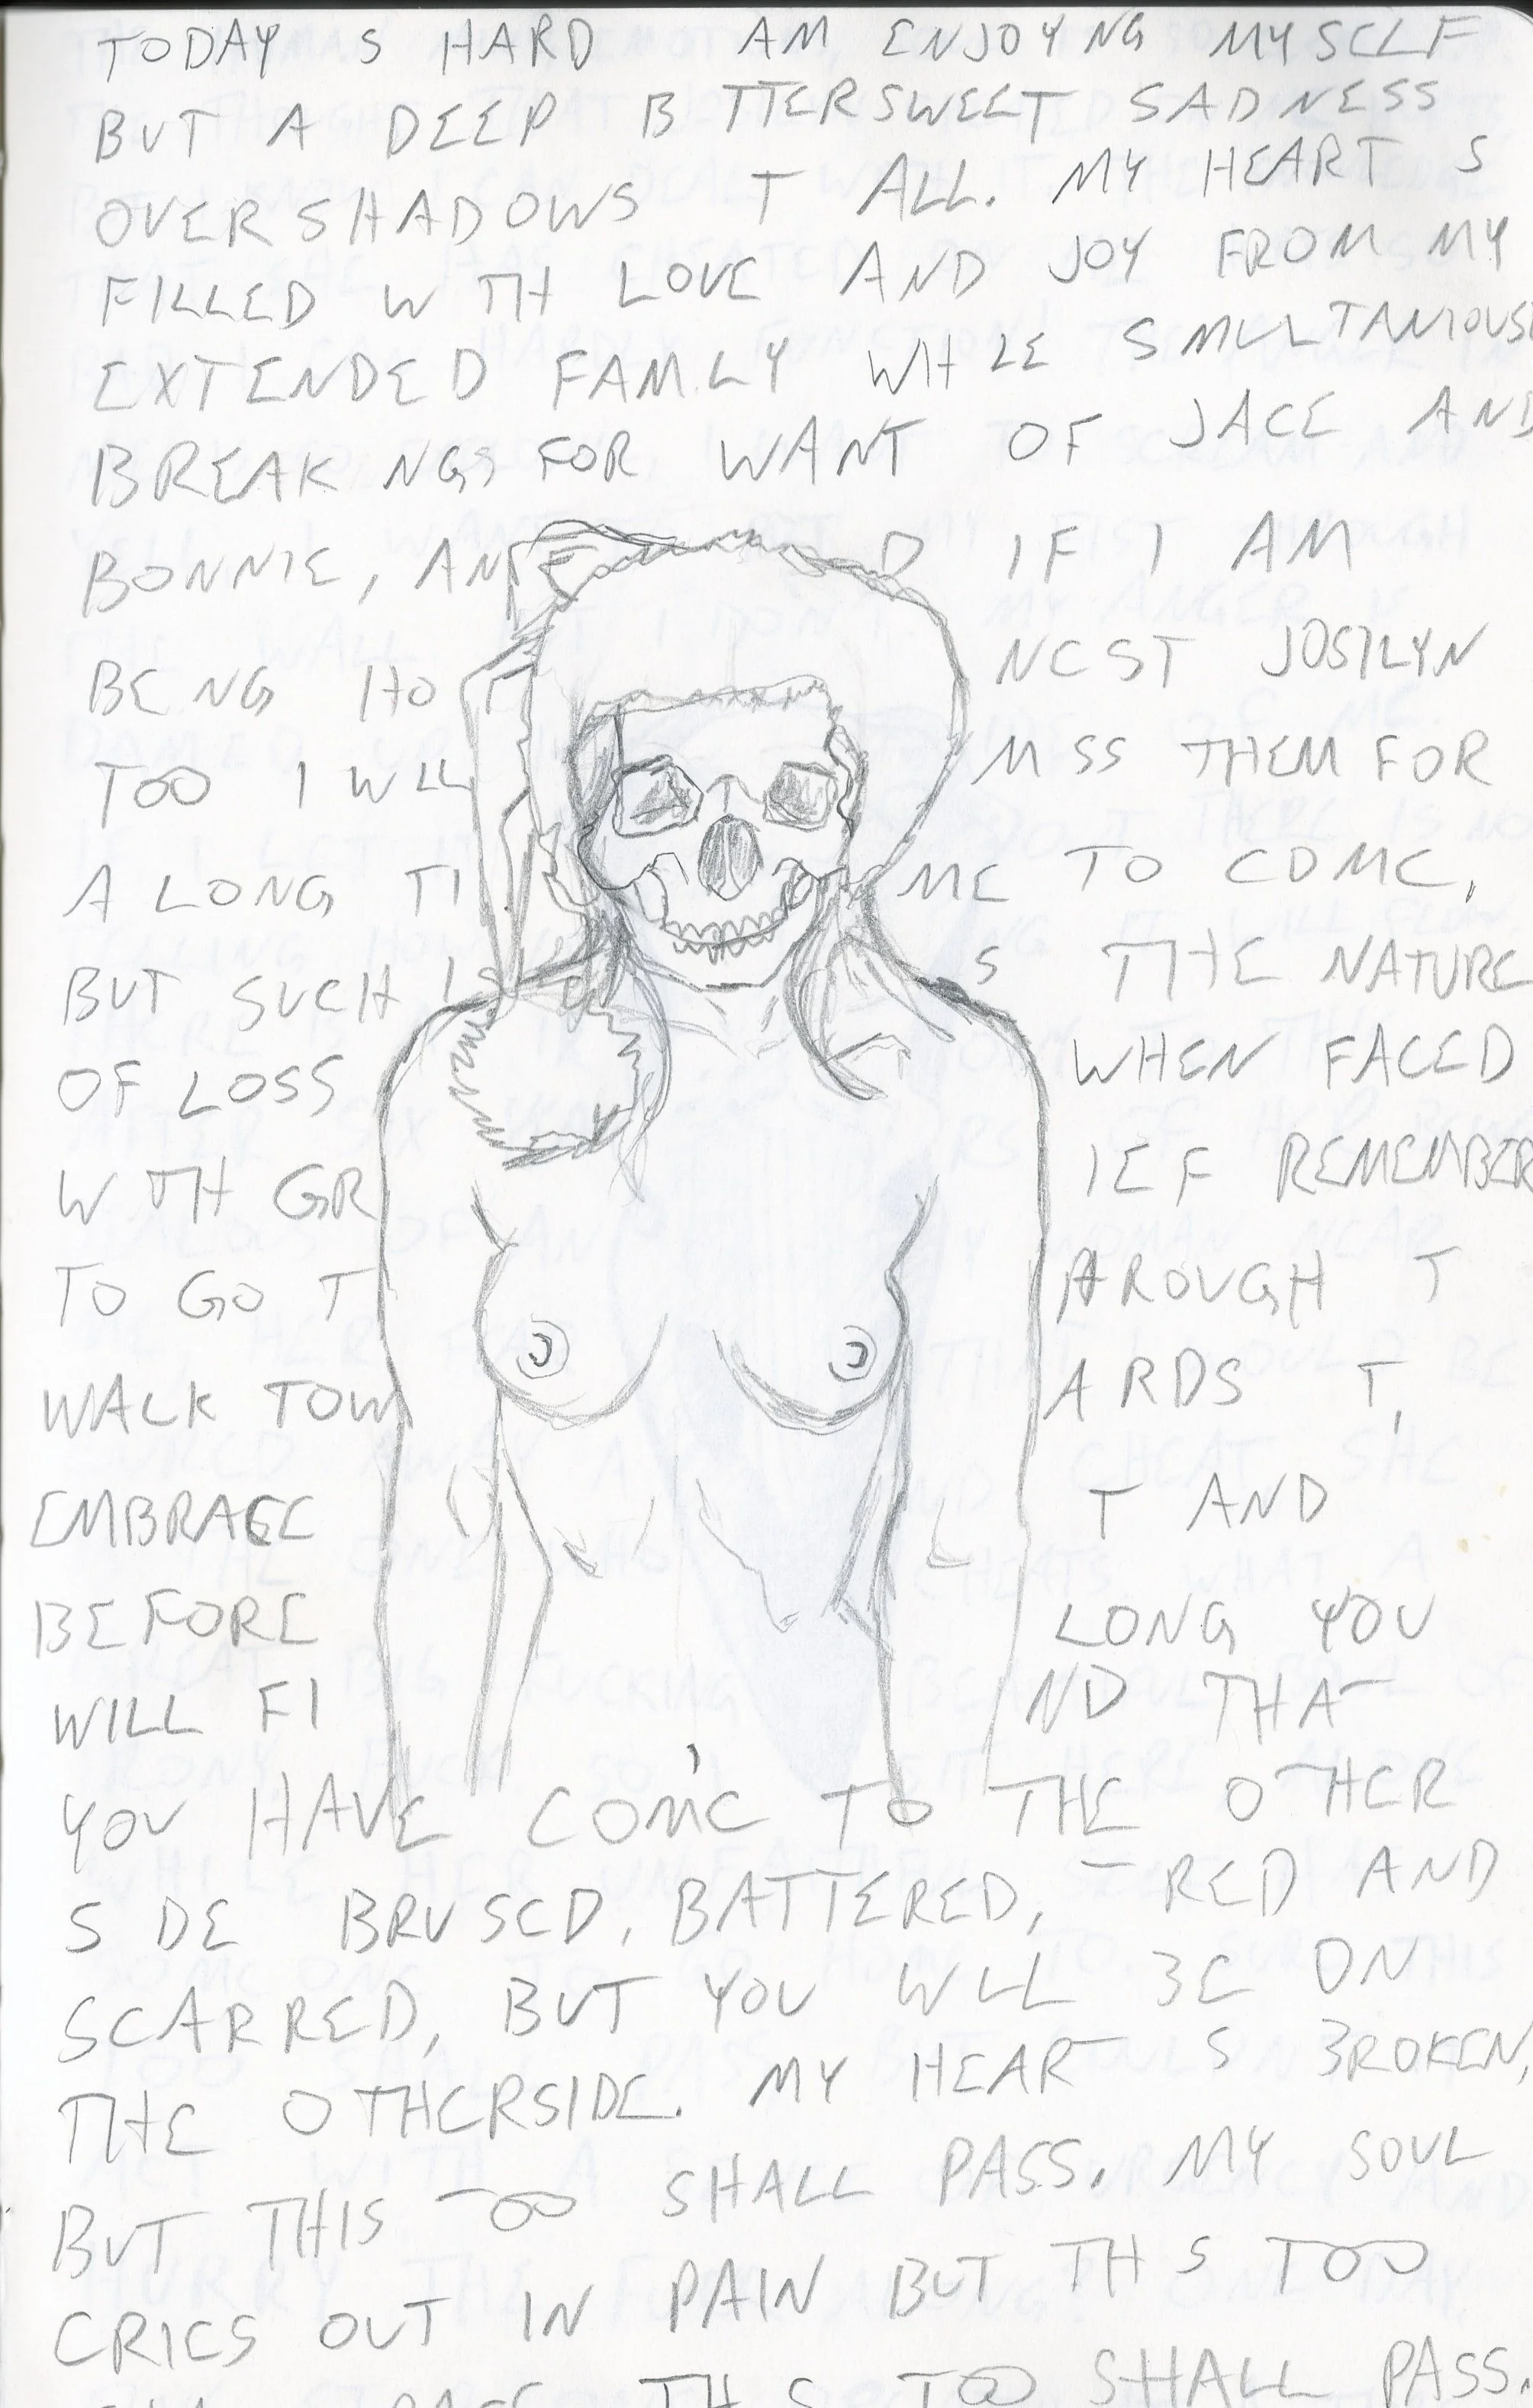 TODAY S HARD AM ENJOYNG MYSELF
BUT A DEEP B TTERSWEET SADNESS
OVERSHADOWS T ALL. MY HEART S
FILLED W TH LOVE AND JOY FROM MY
EXTENDED FAMILY WHILE S MULTANIOUSL
BREAK NGS FOR WANT OF JACE AND
BONNIE, AND IF I AM
BE NG HO NEST JOSILYN
TOO I WLL M SS THEM FOR
A LONG TI ME TO COME,
BUT SUCH IS S THE NATURE
OF LOSS WHEN FACED
W TH GR IEF REMEMBER
TO GO T HROUGH T
WALK TOW ARDS T,
EMBRACE T AND
BEFORE LONG YOU
WILL FI ND THAT
YOU HAVE COME TO THE OTHER
S DE BRU SED, BATTERED, T RED AND
SCARRED, BUT YOU WLL BE ON
THE OTHERSIDE. MY HEART S BROKEN,
BUT THIS TOO SHALL PASS. MY SOUL
CRIES OUT IN PAIN BUT TH S TOO
PASS TH S TOO SHALL PASS.